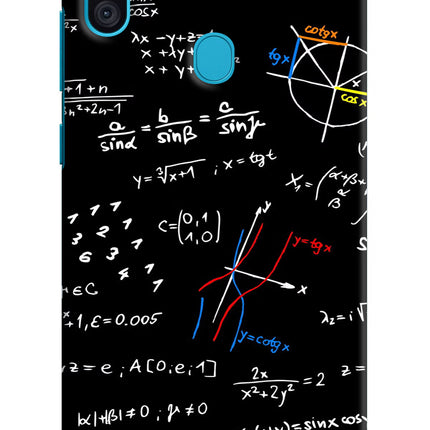 cosx
λx - y + z =
x + λy +
x + y +
cotgx
tgx
x
cosx
+1+n
n²+2n-1
a/sinα = b/sinβ = c/sinγ
y = ∛x+1 ; x = tgt
X₁ = (α+β+
α
β
1 1 1
3 2 1
6 3 1
4 1
1
C = (0,1
1,0)
y
y=tgx
x
y=cotgx
+1, ε = 0.005
λ₂ = i√
z = e ; A[0;e;1]
2x/x²+2y² = 2
z =
|α|+|β| ≠ 0 ; γ ≠ 0
= sinx cos